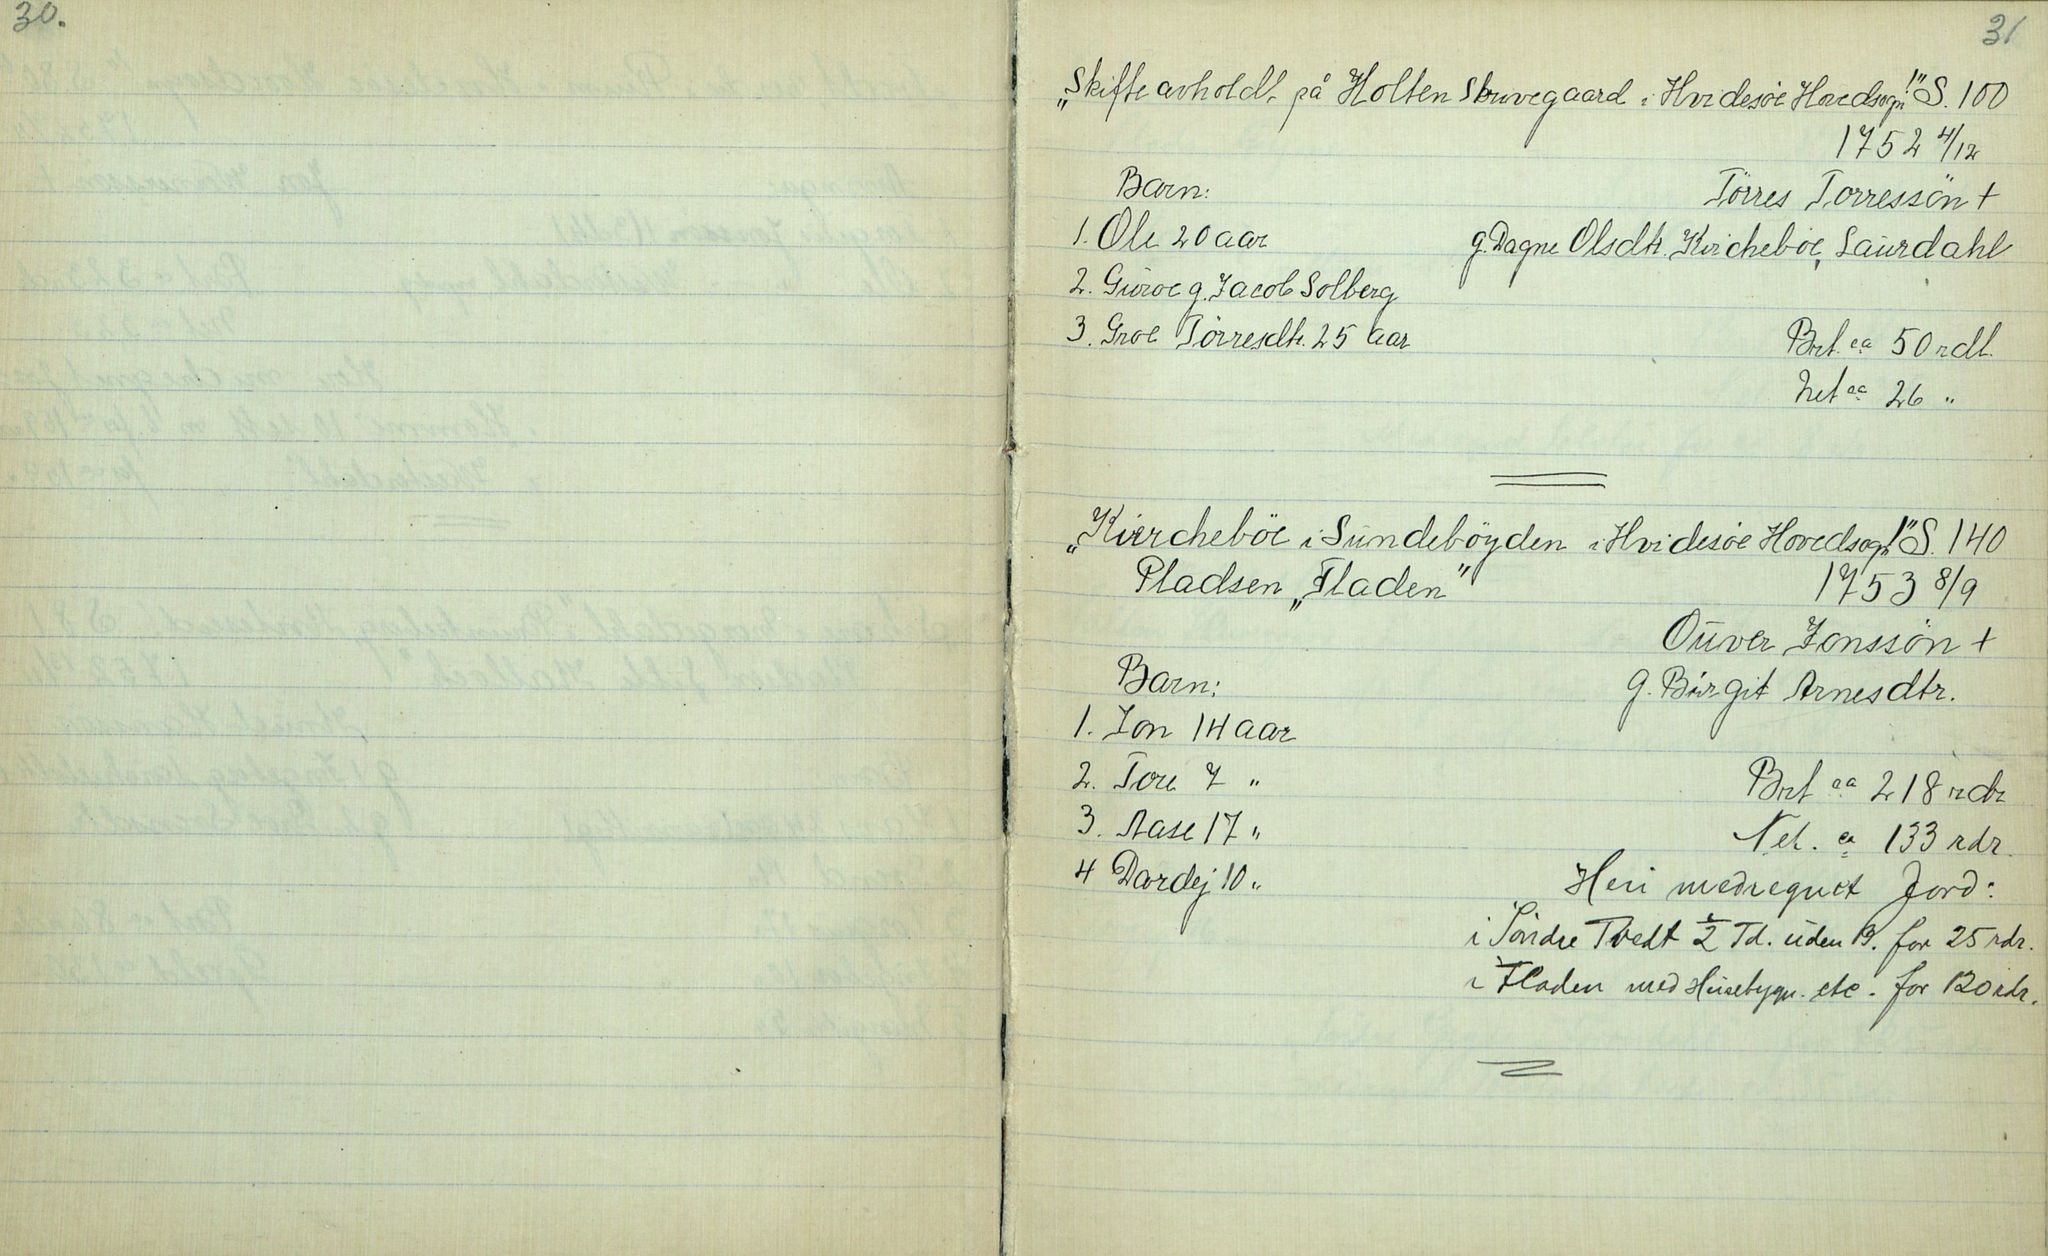 30.
31
„Skifte avholdt på Holten Skrivegaard i Hvidesøe Hovedsogn!" S. 100
1752 4/12
Barn:
Törres Torressön +
1. Ole 20 aar
g. Dagne Olsdtr. Kirchebøe, Laurdahl
2. Guroe g. Jacob Solberg
3. Groe Törresdtr. 25 aar
Brt. ca 50 rdl.
Net ca 26 "
„Kircheböe i Sundebøyden i Hvidesøe Hovedsogn!" S. 140
Pladsen „Fladen"
1753 8/9
Ouver Jonssön +
Barn:
g. Birgit Arnesdtr.
1. Jon 14 aar
2. Tore 7 "
Brt ca 218 rdr
3. Aase 17 "
Net. ca 133 rdr.
4 Dardej 10 "
Heri medregnet Jord:
i Söndre Tvedt 1/2 Td. uden B. for 25 rdr.
i Fladen med Husebygn. etc. for 120 rdr.